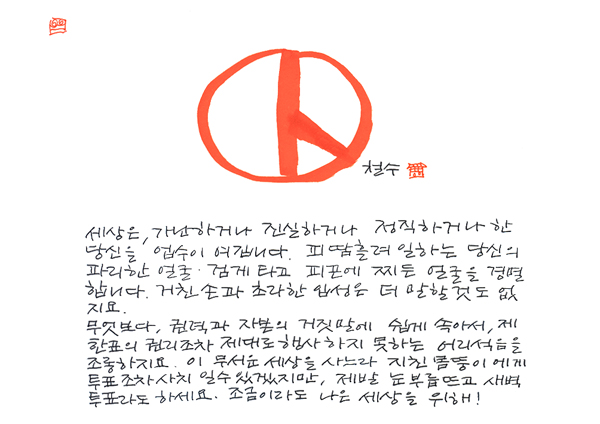 철수
세상은, 가난하거나 진실하거나 정직하거나 한
당신을 업수이 여깁니다. 피땀흘려 일하는 당신의
파리한 얼굴·검게 타고 피곤에 찌든 얼굴을 경멸
합니다. 거친 손과 초라한 입성은 더 말할것도 없
지요.
무엇보다, 권력과 자본의 거짓말에 쉽게 속아서, 제
한표의 권리조차 제대로행사하지 못하는 어리석음을
조롱하지요. 이 무서운 세상을 사느라 지친 몸뚱이에게
투표조차사치 일수있겠지만, 제발 눈부릅뜨고 새벽
투표라도 하세요. 조금이라도 나은 세상을 위해!